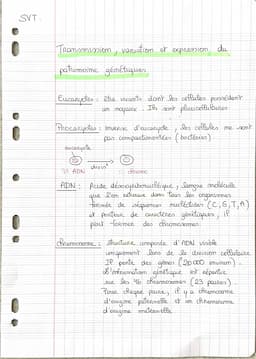 SVT.
Transmission, variation et expression du
patrimoine génétique
Eucaryotes : être vivants dont les cellules possèdent
un noyau. Ils sont pluricellulaires
Procaryotes : inverse d'eucaryote, les cellules ne sont
pas compartimentées (bactéries)
eucaryote
ADN division
ADN : Acide désoxyribonucléique, longue molécule
que l'on retrouve dans tous les organismes
formée de séquences nucléotides (C, G, T, A)
et porteur de caractères génétiques, il
peut former des chromosomes.
Chromosome : structure composée d'ADN visible
uniquement lors de la division cellulaire
Il porte des gènes (20 000 environ).
L'information génétique est répartie
sur les 46 chromosomes (23 paires).
Pour chaque paire, il y a chromosome
d'origine paternelle et un chromosome
d'origine maternelle.